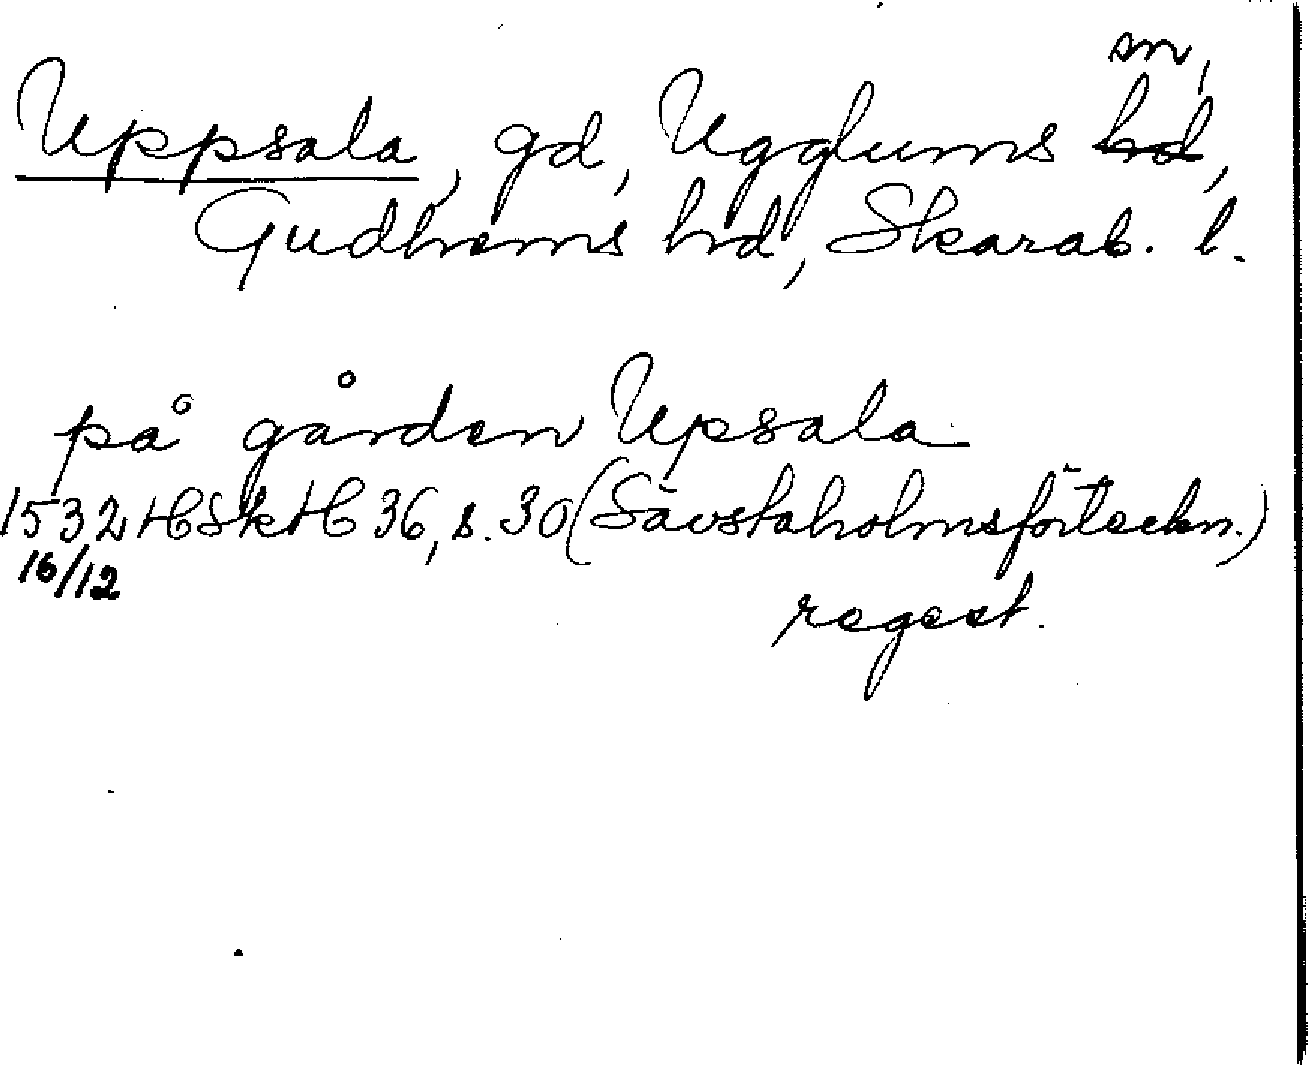 Uppsala, gd, Ugglums hd, sn,
Gudhems hd, Skarab. l.
på gården Upsala
1532 HSkH 36, s. 30 (Sävstaholmsförteckn.)
16/12
regest.